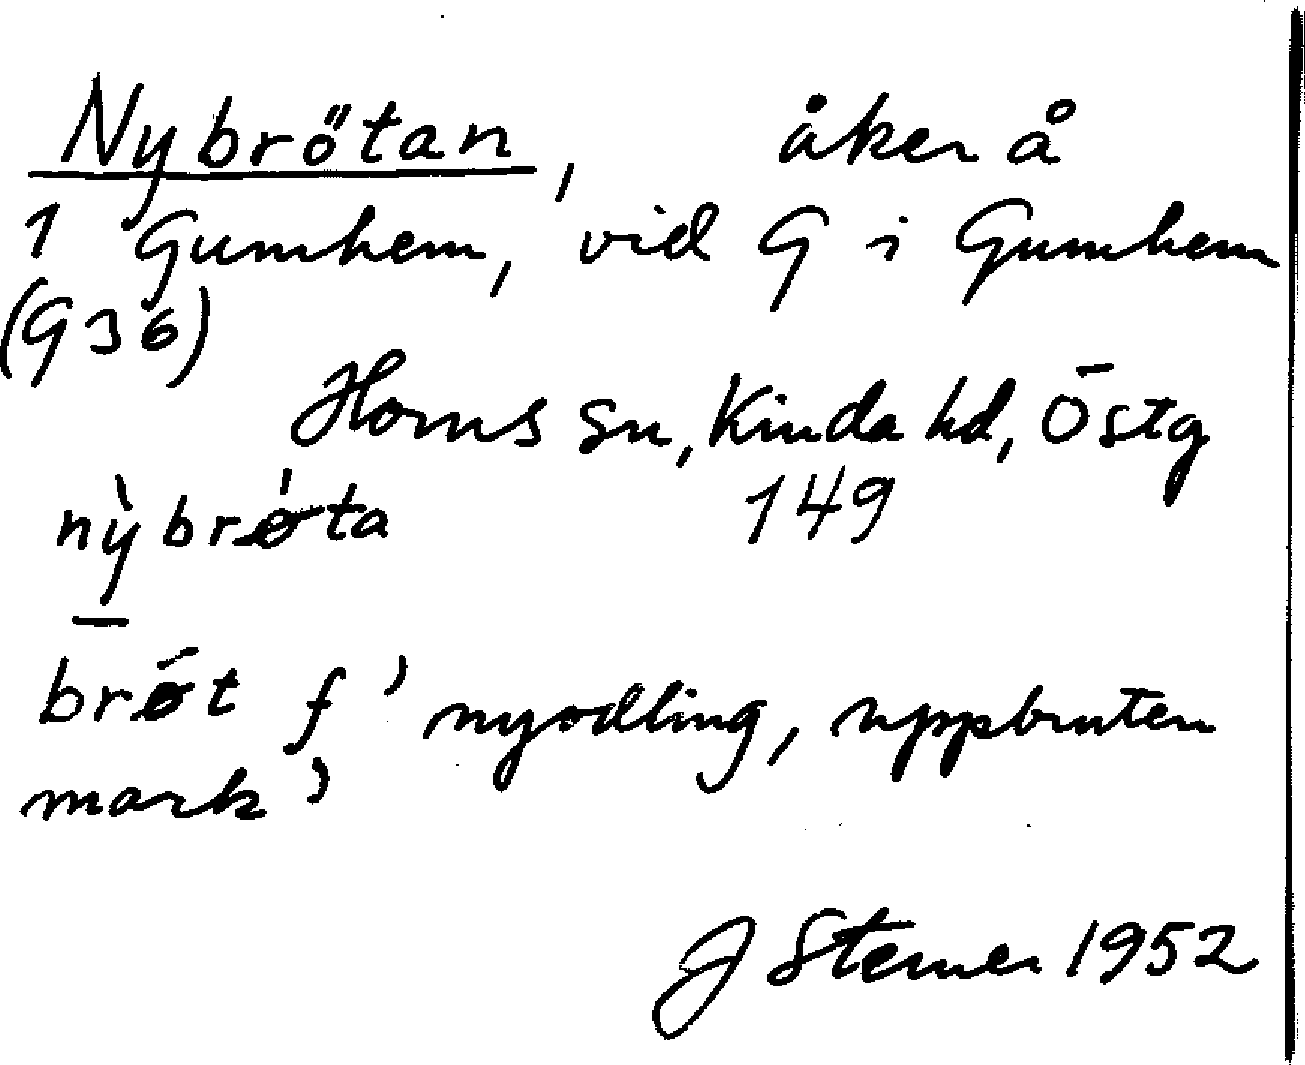 Nybrötan, åker å
1 Gumhem, vid G i Gumhem
(G 36)
Horns sn, Kinda hd, Östg
nỳbrǿta 149
brǿt f ’nyodling, uppbruten
mark’
J Sterner 1952